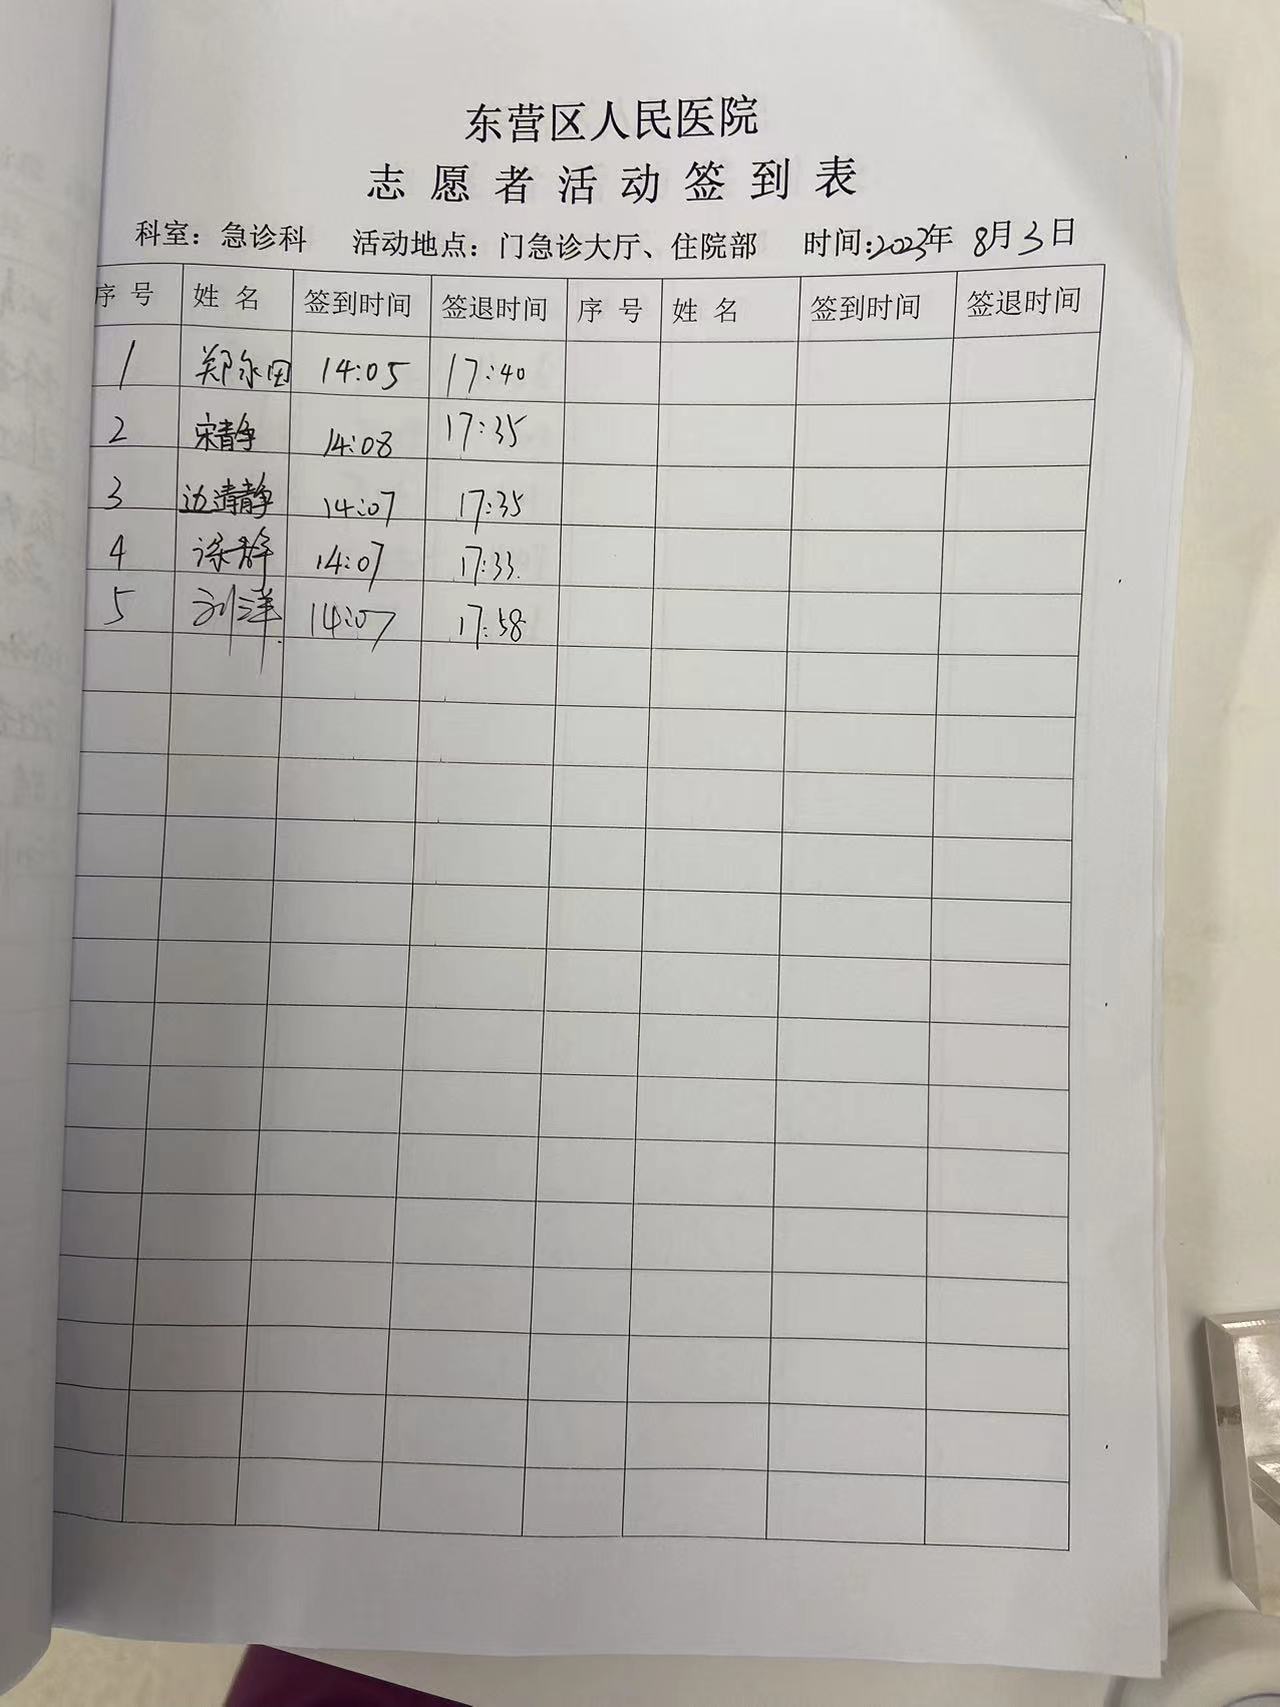 东营区人民医院
志愿者活动签到表
科室：急诊科 活动地点：门急诊大厅、住院部 时间：2023年 8月3日
序号 姓名 签到时间 签退时间 序号 姓名 签到时间 签退时间
1 郑永田 14:05 17:40
2 宋静 14:08 17:35
3 边清静 14:07 17:35
4 徐静 14:07 17:33
5 刘洋 14:07 17:58